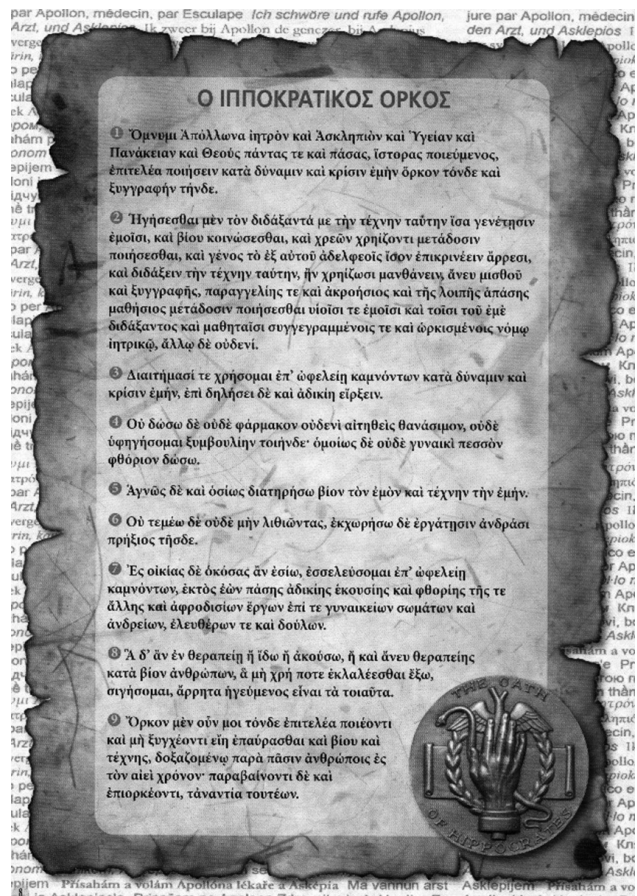 par Apollon, médecin, par Esculape Ich schwöre und rufe Apollon, jure par Apollon, médecin
Arzt, und Asklepios Ik zweer bij Apollon de genezer, bij den Arzt, und Asklepios
Ο ΙΠΠΟΚΡΑΤΙΚΟΣ ΟΡΚΟΣ
❶ Ὄμνυμι Ἀπόλλωνα ἰητρὸν καὶ Ἀσκληπιὸν καὶ Ὑγείαν καὶ
Πανάκειαν καὶ Θεοὺς πάντας τε καὶ πάσας, ἵστορας ποιεύμενος,
ἐπιτελέα ποιήσειν κατὰ δύναμιν καὶ κρίσιν ἐμὴν ὅρκον τόνδε καὶ
ξυγγραφὴν τήνδε.
❷ Ἡγήσεσθαι μὲν τὸν διδάξαντά με τὴν τέχνην ταύτην ἴσα γενέτῃσιν
ἐμοῖσι, καὶ βίου κοινώσεσθαι, καὶ χρεῶν χρηίζοντι μετάδοσιν
ποιήσεσθαι, καὶ γένος τὸ ἐξ αὐτοῦ ἀδελφεοῖς ἴσον ἐπικρινέειν ἄρρεσι,
καὶ διδάξειν τὴν τέχνην ταύτην, ἢν χρηίζωσι μανθάνειν, ἄνευ μισθοῦ
καὶ ξυγγραφῆς, παραγγελίης τε καὶ ἀκροήσιος καὶ τῆς λοιπῆς ἁπάσης
μαθήσιος μετάδοσιν ποιήσεσθαι υἱοῖσί τε ἐμοῖσι καὶ τοῖσι τοῦ ἐμὲ
διδάξαντος καὶ μαθηταῖσι συγγεγραμμένοις τε καὶ ὡρκισμένοις νόμῳ
ἰητρικῷ, ἄλλῳ δὲ οὐδενί.
❸ Διαιτήμασί τε χρήσομαι ἐπ' ὠφελείῃ καμνόντων κατὰ δύναμιν καὶ
κρίσιν ἐμήν, ἐπὶ δηλήσει δὲ καὶ ἀδικίῃ εἴρξειν.
❹ Οὐ δώσω δὲ οὐδὲ φάρμακον οὐδενὶ αἰτηθεὶς θανάσιμον, οὐδὲ
ὑφηγήσομαι ξυμβουλίην τοιήνδε· ὁμοίως δὲ οὐδὲ γυναικὶ πεσσὸν
φθόριον δώσω.
❺ Ἁγνῶς δὲ καὶ ὁσίως διατηρήσω βίον τὸν ἐμὸν καὶ τέχνην τὴν ἐμήν.
❻ Οὐ τεμέω δὲ οὐδὲ μὴν λιθιῶντας, ἐκχωρήσω δὲ ἐργάτῃσιν ἀνδράσι
πρήξιος τῆσδε.
❼ Ἐς οἰκίας δὲ ὁκόσας ἂν ἐσίω, ἐσσελεύσομαι ἐπ' ὠφελείῃ
καμνόντων, ἐκτὸς ἐὼν πάσης ἀδικίης ἑκουσίης καὶ φθορίης τῆς τε
ἄλλης καὶ ἀφροδισίων ἔργων ἐπί τε γυναικείων σωμάτων καὶ
ἀνδρείων, ἐλευθέρων τε καὶ δούλων.
❽ Ἃ δ' ἂν ἐν θεραπείῃ ἢ ἴδω ἢ ἀκούσω, ἢ καὶ ἄνευ θεραπείης
κατὰ βίον ἀνθρώπων, ἃ μὴ χρή ποτε ἐκλαλέεσθαι ἔξω,
σιγήσομαι, ἄρρητα ἡγεύμενος εἶναι τὰ τοιαῦτα.
❾ Ὅρκον μὲν οὖν μοι τόνδε ἐπιτελέα ποιέοντι
καὶ μὴ ξυγχέοντι εἴη ἐπαύρασθαι καὶ βίου καὶ
τέχνης, δοξαζομένῳ παρὰ πᾶσιν ἀνθρώποις ἐς
τὸν αἰεὶ χρόνον· παραβαίνοντι δὲ καὶ
ἐπιορκέοντι, τἀναντία τουτέων.
THE OATH
OF HIPPOCRATES
epijem Přísahám a volám Apollóna lékaře a Asképia Ma vannun arst Asklepijem Přísahám a vo
8